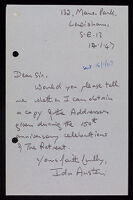 132, Manor Park,
Lewisham,
S.E.13
14/1/47
Dear Sir,
Would you please tell
me whether I can obtain
a copy of the Addresses
given during the 150th
anniversary celebrations
of The Retreat.
Yours faithfully,
Ida Austen